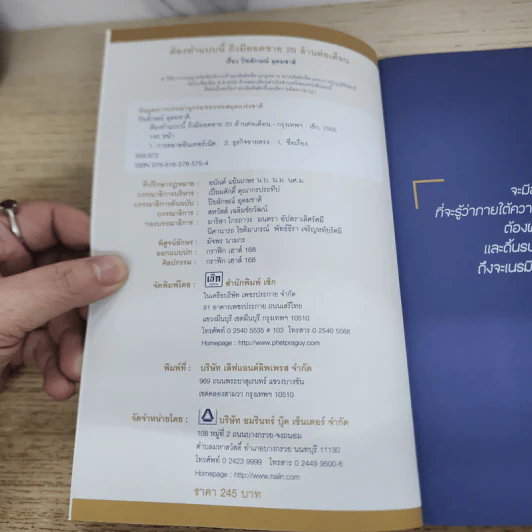 ต้องทำแบบนี้ ถึงมียอดขาย 20 ล้านต่อเดือน
เรื่อง ปิยลักษณ์ อุดมชาติ
ข้อมูลทางบรรณานุกรมของหอสมุดแห่งชาติ
ปิยลักษณ์ อุดมชาติ
ต้องทำแบบนี้ ถึงมียอดขาย 20 ล้านต่อเดือน.--กรุงเทพฯ : เช็ก,
168 หน้า
1. การตลาดอินเทอร์เน็ต. 2. ธุรกิจขายตรง. I. ชื่อเรื่อง
658.872
ISBN 978-616-578-575-4
ที่ปรึกษากฎหมาย : ธนันต์ แย้มเกษร น.บ. น.บ. นศ.ม.
บรรณาธิการบริหาร : เปี่ยมศักดิ์ คุณากรประทีป
บรรณาธิการต้นฉบับ : ปิยลักษณ์ อุดมชาติ
บรรณาธิการ : สหวัสส์ เฉลิมชัยวัฒน์
กองบรรณาธิการ : มาริสา ไกรถาวร มนตรา อัปสราเลิศรัศมี
นิศานารถ โชติมาภรณ์ พัทธ์ธีรา เจริญหทัยรัศมี
พิสูจน์อักษร : มัจพร นามกร
ออกแบบปก : กราฟิก เฮาส์ 168
ศิลปกรรม : กราฟิก เฮาส์ 168
จัดพิมพ์โดย : เช็ก สำนักพิมพ์ เช็ก
ในเครือบริษัท เพชรประกาย จำกัด
81 อาคารเพชรประกาย ถนนเสรีไทย
แขวงมีนบุรี เขตมีนบุรี กรุงเทพฯ 10510
โทรศัพท์ 0 2540 5535 ต่อ 103 โทรสาร 0 2540 5568
Homepage : http://www.phetpraguy.com
พิมพ์ที่ : บริษัท เลิฟแอนด์ลิพเพรส จำกัด
969 ถนนพระยาสุเรนทร์ แขวงบางชัน
เขตคลองสามวา กรุงเทพฯ 10510
จัดจำหน่ายโดย : บริษัท อมรินทร์ บุ๊ค เซ็นเตอร์ จำกัด
108 หมู่ที่ 2 ถนนบางกรวย-จงถนอม
ตำบลมหาสวัสดิ์ อำเภอบางกรวย นนทบุรี 11130
โทรศัพท์ 0 2423 9999 โทรสาร 0 2449 9500-6
Homepage : http://www.naiin.com
ราคา 245 บาท
จะมีส
ที่จะรู้ว่าภายใต้ความ
ต้องผ
และดิ้นรน
ถึงจะเนรมิ